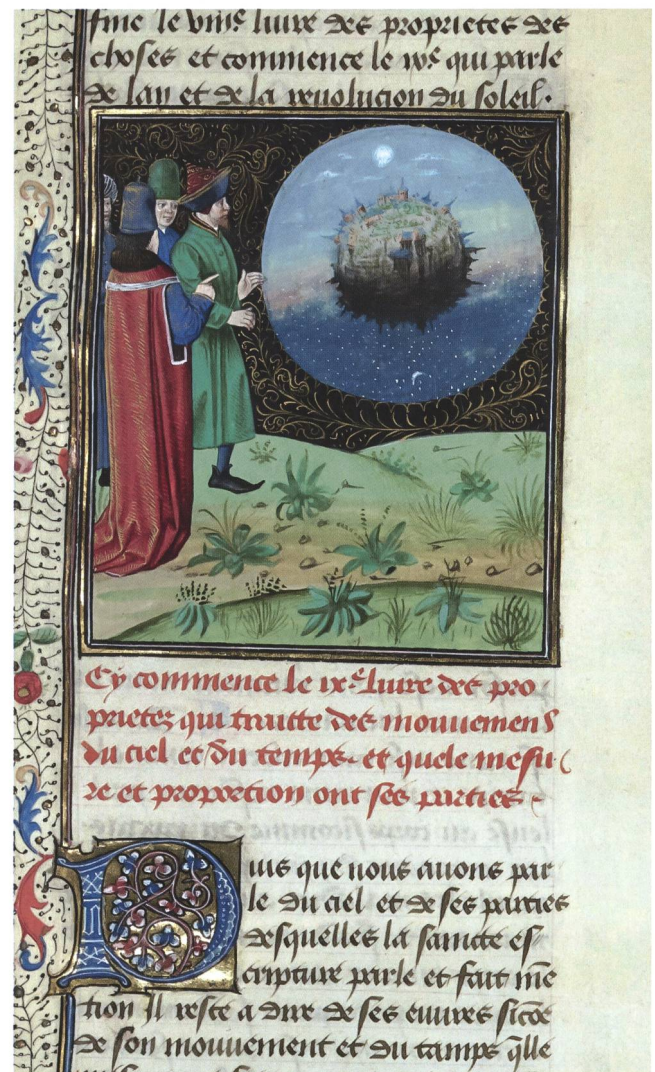 fine le viiiᵉ liure des proprietes des
choses et commence le ixᵉ qui parle
de lan et de la reuolucion du soleil.
Cy commence le ixᵉ liure des pro
prietez qui traitte des mouuemens
du ciel et du temps. et quele mesu
re et proportion ont ses parties.
Puis que nous auons par
le du ciel et de ses parties
desquelles la saincte es
cripture parle et fait mē
tion Il reste a dire de ses euures sicōe
de son mouuement et du tamps q̄lle